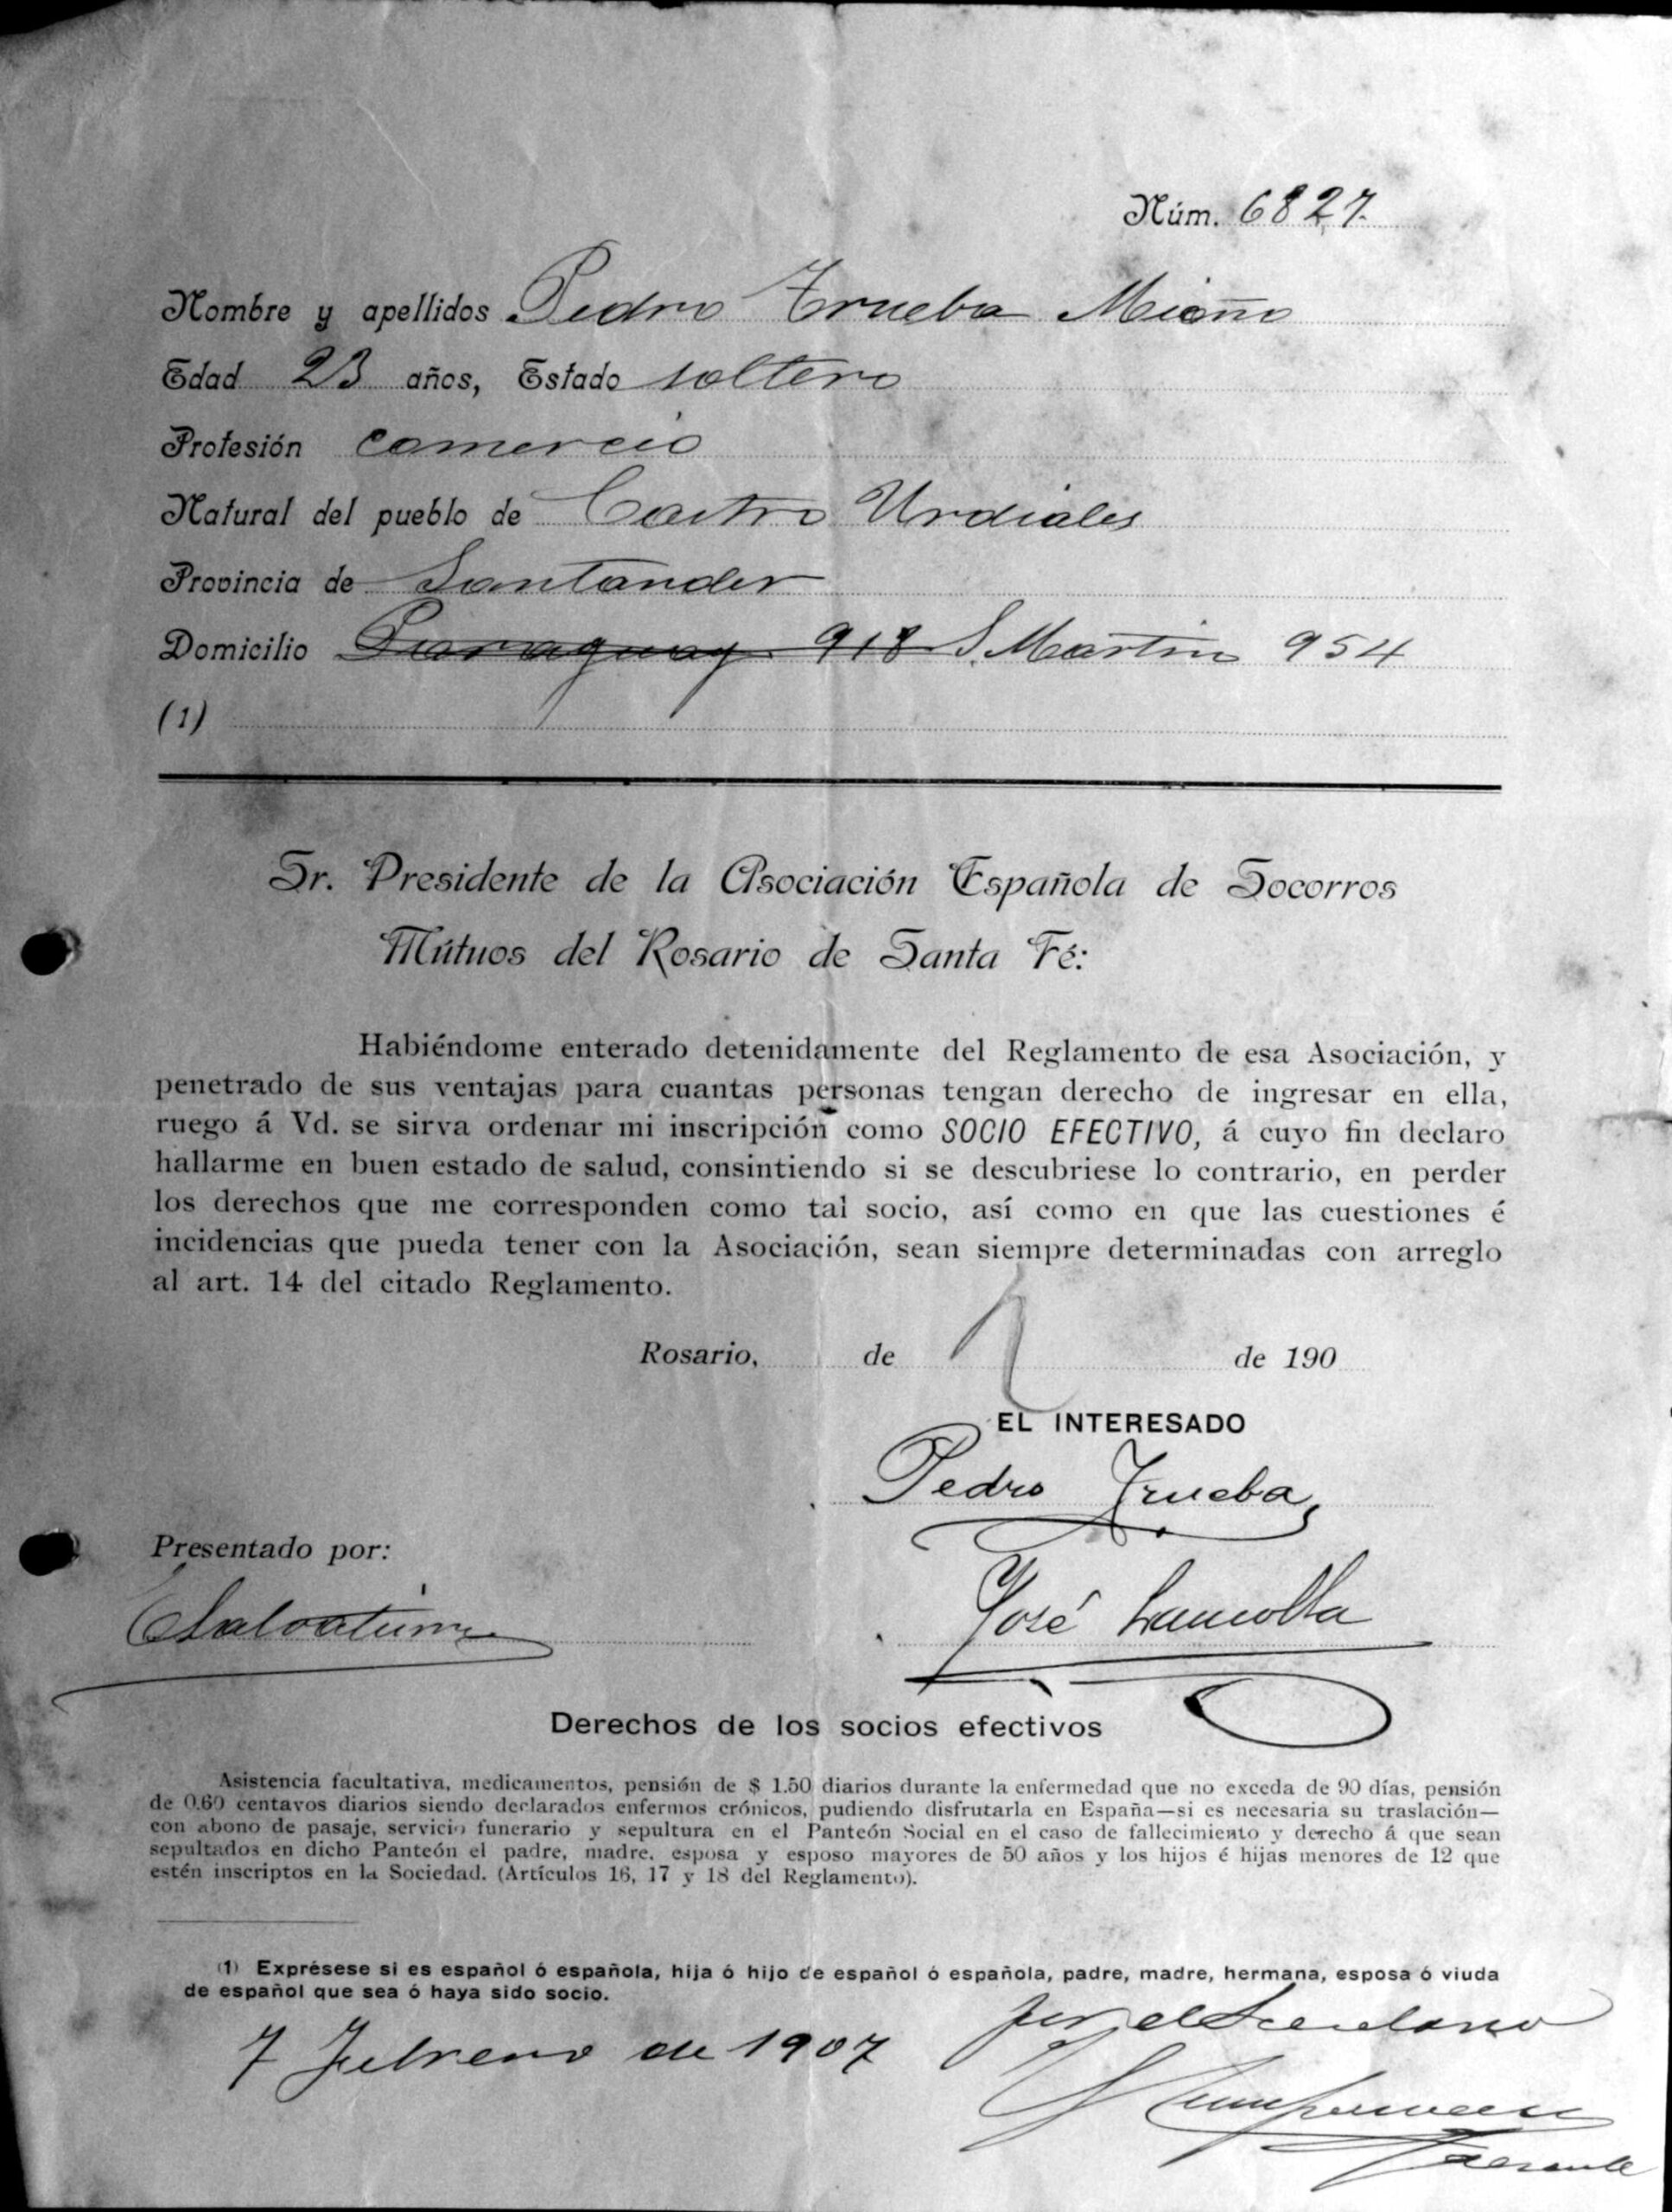 Núm. 6827.
Nombre y apellidos Pedro Trueba Mioño
Edad 23 años, Estado soltero
Profesión comercio
Natural del pueblo de Castro Urdiales
Provincia de Santander
Domicilio Paraguay 918 S. Martin 954
(1)
Sr. Presidente de la Asociación Española de Socorros
Mútuos del Rosario de Santa Fé:
Habiéndome enterado detenidamente del Reglamento de esa Asociación, y
penetrado de sus ventajas para cuantas personas tengan derecho de ingresar en ella,
ruego á Vd. se sirva ordenar mi inscripción como SOCIO EFECTIVO, á cuyo fin declaro
hallarme en buen estado de salud, consintiendo si se descubriese lo contrario, en perder
los derechos que me corresponden como tal socio, así como en que las cuestiones é
incidencias que pueda tener con la Asociación, sean siempre determinadas con arreglo
al art. 14 del citado Reglamento.
Rosario, de de 190
EL INTERESADO
Pedro Trueba
Presentado por:
José
Derechos de los socios efectivos
Asistencia facultativa, medicamentos, pensión de $ 1.50 diarios durante la enfermedad que no exceda de 90 días, pensión
de 0.60 centavos diarios siendo declarados enfermos crónicos, pudiendo disfrutarla en España—si es necesaria su traslación—
con abono de pasaje, servicio funerario y sepultura en el Panteón Social en el caso de fallecimiento y derecho á que sean
sepultados en dicho Panteón el padre, madre, esposa y esposo mayores de 50 años y los hijos é hijas menores de 12 que
estén inscriptos en la Sociedad. (Artículos 16, 17 y 18 del Reglamento).
(1) Exprésese si es español ó española, hija ó hijo de español ó española, padre, madre, hermana, esposa ó viuda
de español que sea ó haya sido socio.
7 Febrero de 1907